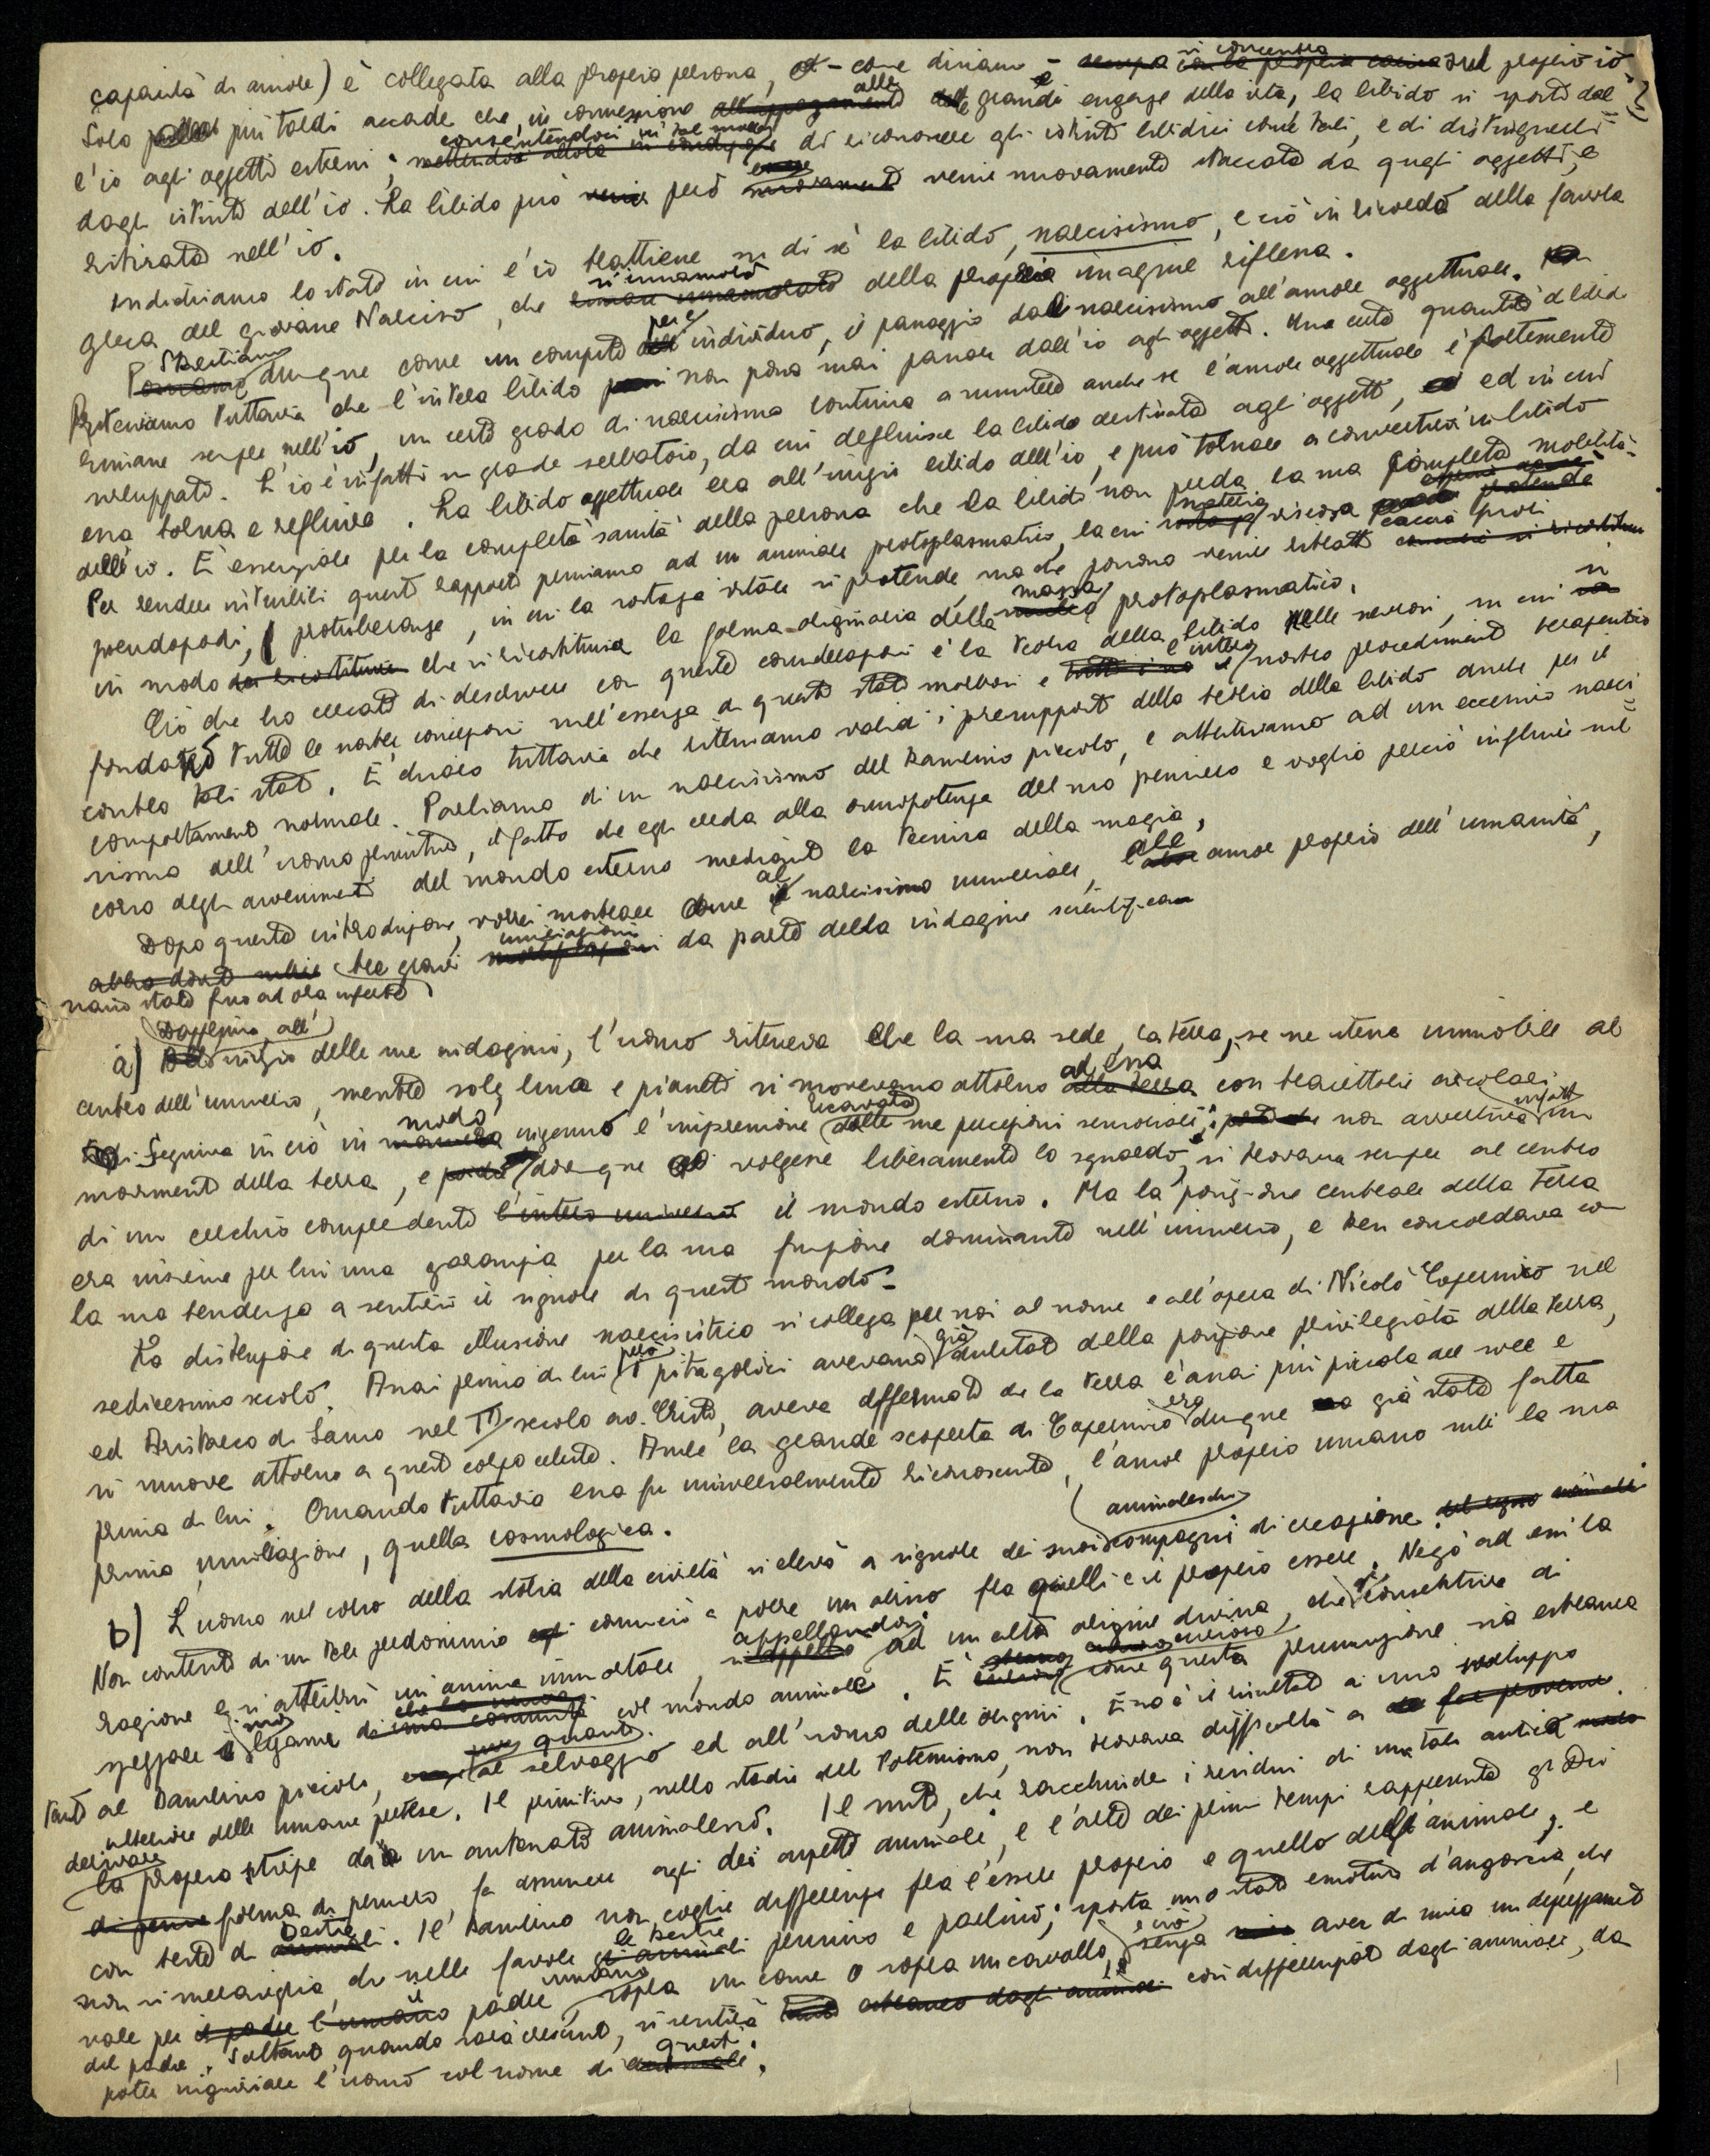 capacità di amore) è collegata alla propria persona, – come diciamo – si concentra sul proprio io.
Solo più tardi accade che, in connessione alle grandi esigenze della vita, la libido si sposti dal-
l'io agli oggetti esterni; consentendoci in tal modo di riconoscere gli istinti libidici come tali, e di distinguerli
dagli istinti dell'io. La libido può però venir nuovamente staccata da quegli oggetti, e
ritirata nell'io.
Indichiamo lo stato in cui l'io trattiene su di sé la libido, narcisismo, e ciò in ricordo della favola
greca del giovane Narciso, che si innamorò della propria imagine riflessa.
Riteniamo dunque come un compito per l'individuo, il passaggio dal narcisismo all'amore oggettuale.
Riteniamo tuttavia che l'intera libido non possa mai passare dall'io agli oggetti. Una certa quantità di libido
rimane sempre nell'io, un certo grado di narcisismo continua a sussistere anche se l'amore oggettuale è fortemente
sviluppato. L'io è infatti un grande serbatoio, da cui defluisce la libido destinata agli oggetti, ed in cui
essa torna a refluire. La libido oggettuale era all'inizio libido dell'io, e può tornare a convertirsi in libido
dell'io. È essenziale per la completa sanità della persona che la libido non perda la sua completa mobilità.
Per rendere intuibili questi rapporti pensiamo ad un animale protoplasmatico, la cui materia viscosa caccia fuori
pseudopodi, protuberanze, in cui la sostanza vitale si protende, ma che possono venire ritratti
in modo che si ricostituisca la forma originaria della massa protoplasmatica.
Ciò che ho cercato di descrivere con queste considerazioni è la teoria della libido nelle nevrosi, su cui si
fondano tutte le nostre concezioni sull'essenza di questi stati morbosi e l'intero nostro procedimento terapeutico
contro tali stati. È chiaro tuttavia che riteniamo validi i presupposti della teoria della libido anche per il
comportamento normale. Parliamo di un narcisismo del bambino piccolo, e attribuiamo ad un eccessivo narci-
sismo dell'uomo primitivo, il fatto che egli creda alla onnipotenza del suo pensiero e voglia perciò influire sul
corso degli avvenimenti del mondo esterno mediante la tecnica della magia.
Dopo questa introduzione, vorrei mostrare come al narcisismo universale, all'amor proprio dell'umanità,
siano state fino ad ora inferte tre gravi umiliazioni da parte della indagine scientifica
a) Dapprima all'inizio delle sue indagini, l'uomo riteneva che la sua sede, la terra, se ne stesse immobile al
centro dell'universo, mentre sole, luna e pianeti si movevano attorno ad essa con traiettorie circolari.
Seguiva in ciò in modo ingenuo l'impressione ricavata dalle sue percezioni sensoriali; non avvertiva infatti un
movimento della terra, e dovunque volgesse liberamente lo sguardo, si trovava sempre al centro
di un cerchio comprendente il mondo esterno. Ma la posizione centrale della terra
era insieme per lui una garanzia per la sua funzione dominante nell'universo, e ben concordava con
la sua tendenza a sentirsi il signore di questo mondo.
La distruzione di questa illusione narcisistica si collega per noi al nome e all'opera di Nicolò Copernico nel
sedicesimo secolo. Assai prima di lui però i pitagorici avevano già dubitato della posizione privilegiata della terra,
ed Aristarco di Samo nel III secolo av. Cristo, aveva affermato che la terra è assai più piccola del sole e
si muove attorno a questo corpo celeste. Anche la grande scoperta di Copernico era dunque già stata fatta
prima di lui. Quando tuttavia essa fu universalmente riconosciuta, l'amor proprio umano subì la sua
prima umiliazione, quella cosmologica.
b) L'uomo nel corso della storia della civiltà si elevò a signore dei suoi animaleschi compagni di creazione
Non contento di un tale predominio cominciò a porre un abisso fra quelli e il proprio essere. Negò ad essi la
ragione e si attribuì un'anima immortale, appellandosi ad un'alta origine divina, che gli consentiva di
spezzare i suoi legami col mondo animale. È curioso come questa presunzione sia estranea
tanto al bambino piccolo, quanto al selvaggio ed all'uomo delle origini. Essa è il risultato di uno sviluppo
ulteriore delle umane pretese. Il primitivo, nello stadio del totemismo, non trovava difficoltà a
derivare la propria stirpe da un antenato animalesco. Il mito, che racchiude i residui di una tale antica
forma di pensiero, fa assumere agli dei aspetti animali, e l'arte dei primi tempi rappresenta gli Dei
con testa di bestia. Il bambino non coglie differenze fra l'essere proprio e quello degli animali; e
non si meraviglia che nelle favole le bestie pensino e parlino; sposta uno stato emotivo d'angoscia, che
vale per il padre umano, sopra un cane o sopra un cavallo, e ciò senza aver di mira un disprezzamento
del padre. Soltanto quando sarà cresciuto, si sentirà così differenziato dagli animali, da
poter ingiuriare l'uomo col nome di questi.